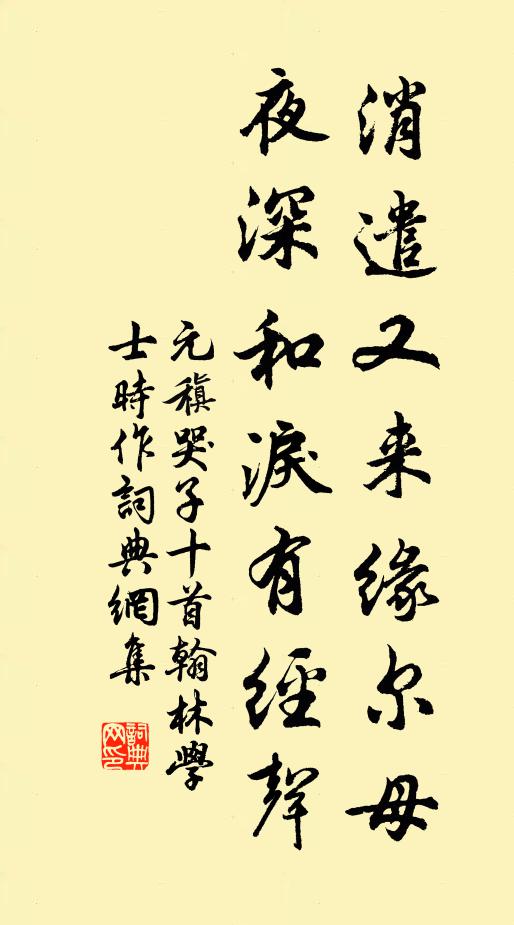 消遣又来緣尔母
夜深和淚有經聲
元稹哭子十首翰林學
士時作詞典網集
詞典
网印